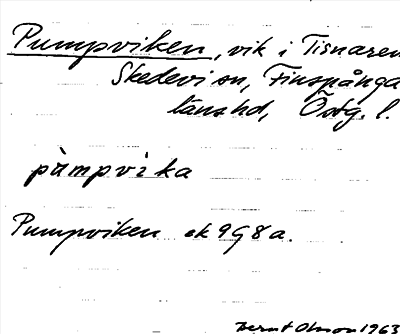 Pumpviken, vik i Tisnaren
Skedevi sn, Finspånga
länshd, Östg. l.
pùmpvika
Pumpviken ek 9 G 8 a.
Bernt Olsson 1963